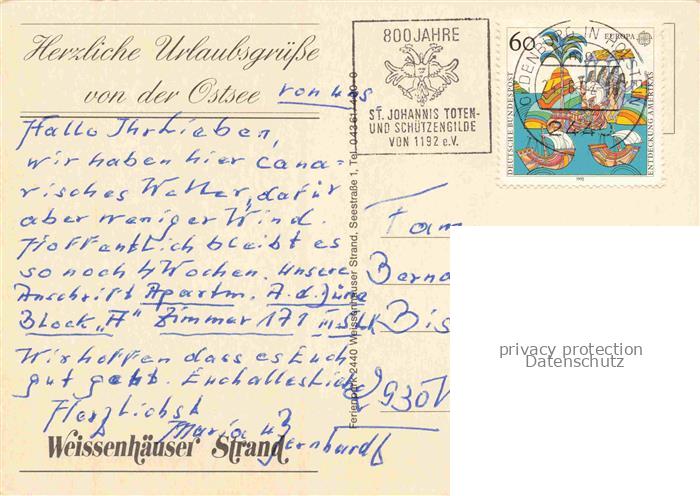 Herzliche Urlaubsgrüße
von der Ostsee
von uns
Hallo Ihr Lieben,
wir haben hier Cana-
risches Wetter, dafür
aber weniger Wind.
Hoffentlich bleibt es
so noch 4 Wochen. Unsere
Anschrift Apartm. A.d. Düne
Block "A" Zimmer 171
Wir hoffen dass es Euch
gut geht. Euch alles Liebe
Herzlichst
Maria u.
Bernhard
Weissenhäuser Strand
Ferienpark 2440 Weissenhäuser Strand, Seestraße 1, Tel. 04361/490-0
800 JAHRE
ST. JOHANNIS TOTEN-
UND SCHÜTZENGILDE
VON 1192 e.V.
OLDENBURG IN HOLSTEIN
2440
60
EUROPA
DEUTSCHE BUNDESPOST
ENTDECKUNG AMERIKAS
1992
Fam
Berna
Bis
privacy protection
Datenschutz